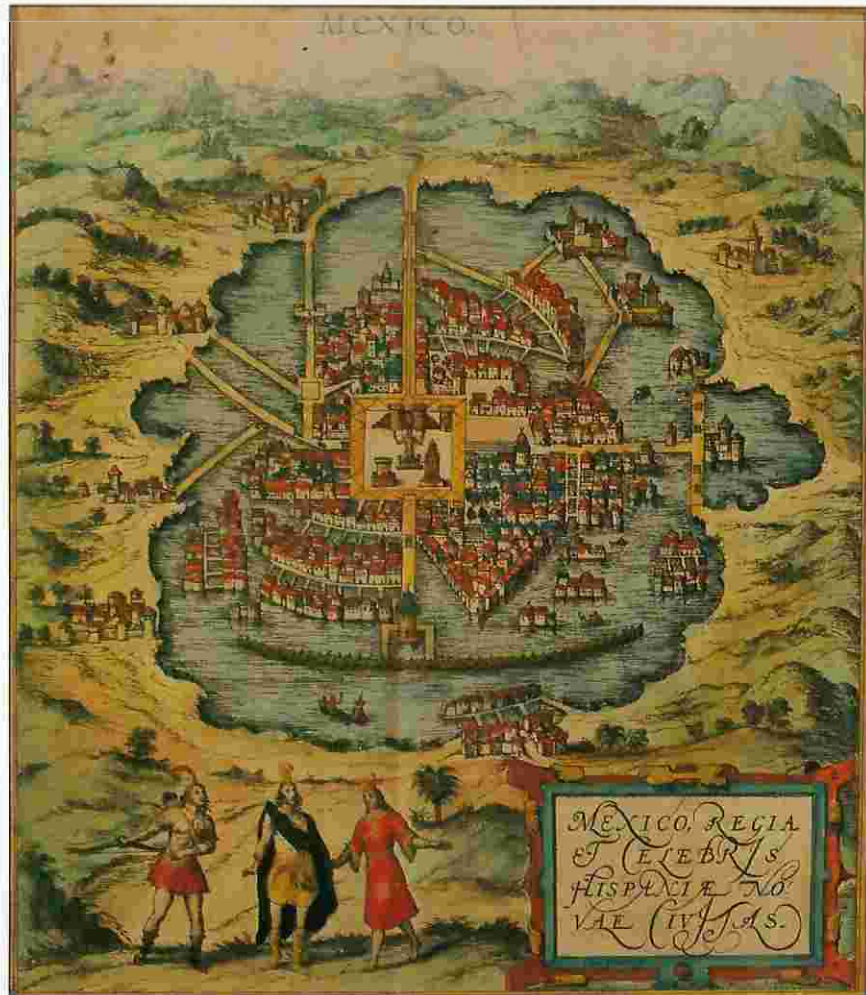 MEXICO.
MEXICO, REGIA
ET CELEBRIS
HISPANIÆ NO
VAE CIVITAS.